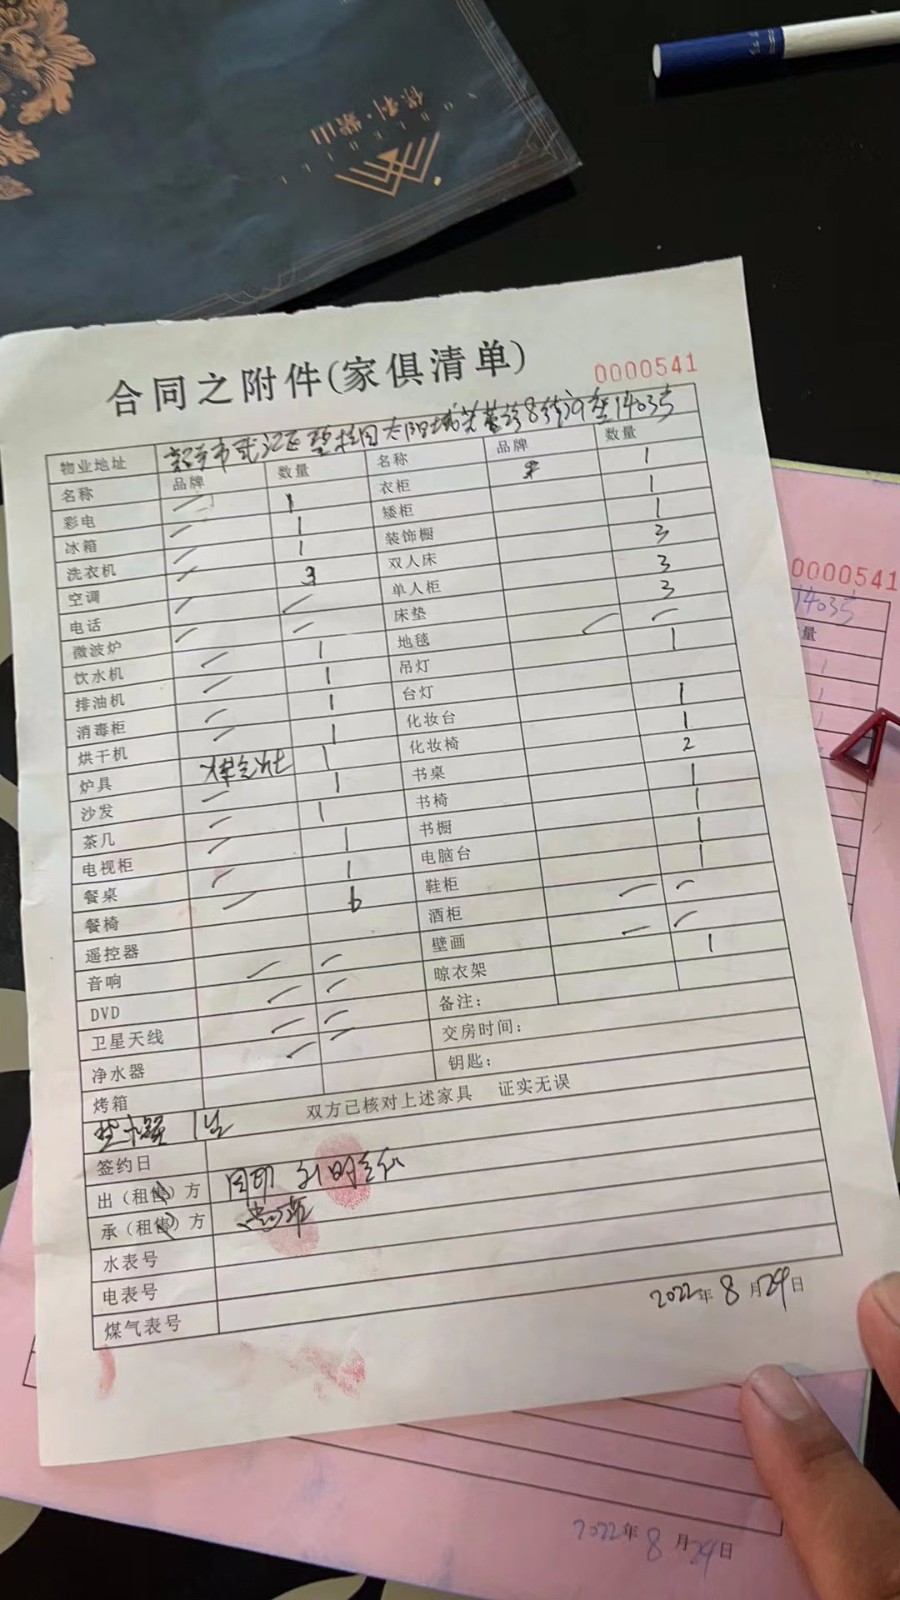 保利·紫山
合同之附件(家俱清单)
0000541
物业地址 太阳城芙蓉 8 1403房
名称 品牌 数量 名称 品牌 数量
彩电 1 衣柜 1
冰箱 1 矮柜 1
洗衣机 1 装饰橱 1
空调 3 双人床 3
电话 单人柜 3
微波炉 床垫 3
饮水机 1 地毯
排油机 1 吊灯 1
消毒柜 1 台灯
烘干机 1 化妆台 1
炉具 煤气灶 1 化妆椅 1
沙发 1 书桌 2
茶几 1 书椅 1
电视柜 1 书橱 1
餐桌 1 电脑台 1
餐椅 6 鞋柜 1
遥控器 酒柜
音响 壁画
DVD 晾衣架 1
卫星天线 备注：
净水器 交房时间：
烤箱 钥匙：
双方已核对上述家具 证实无误
签约日
出（租售）方
承（租售）方
水表号
电表号
煤气表号
2022年 8 月29日
0000541
1403房
量
1
1
2022年 8 月29日